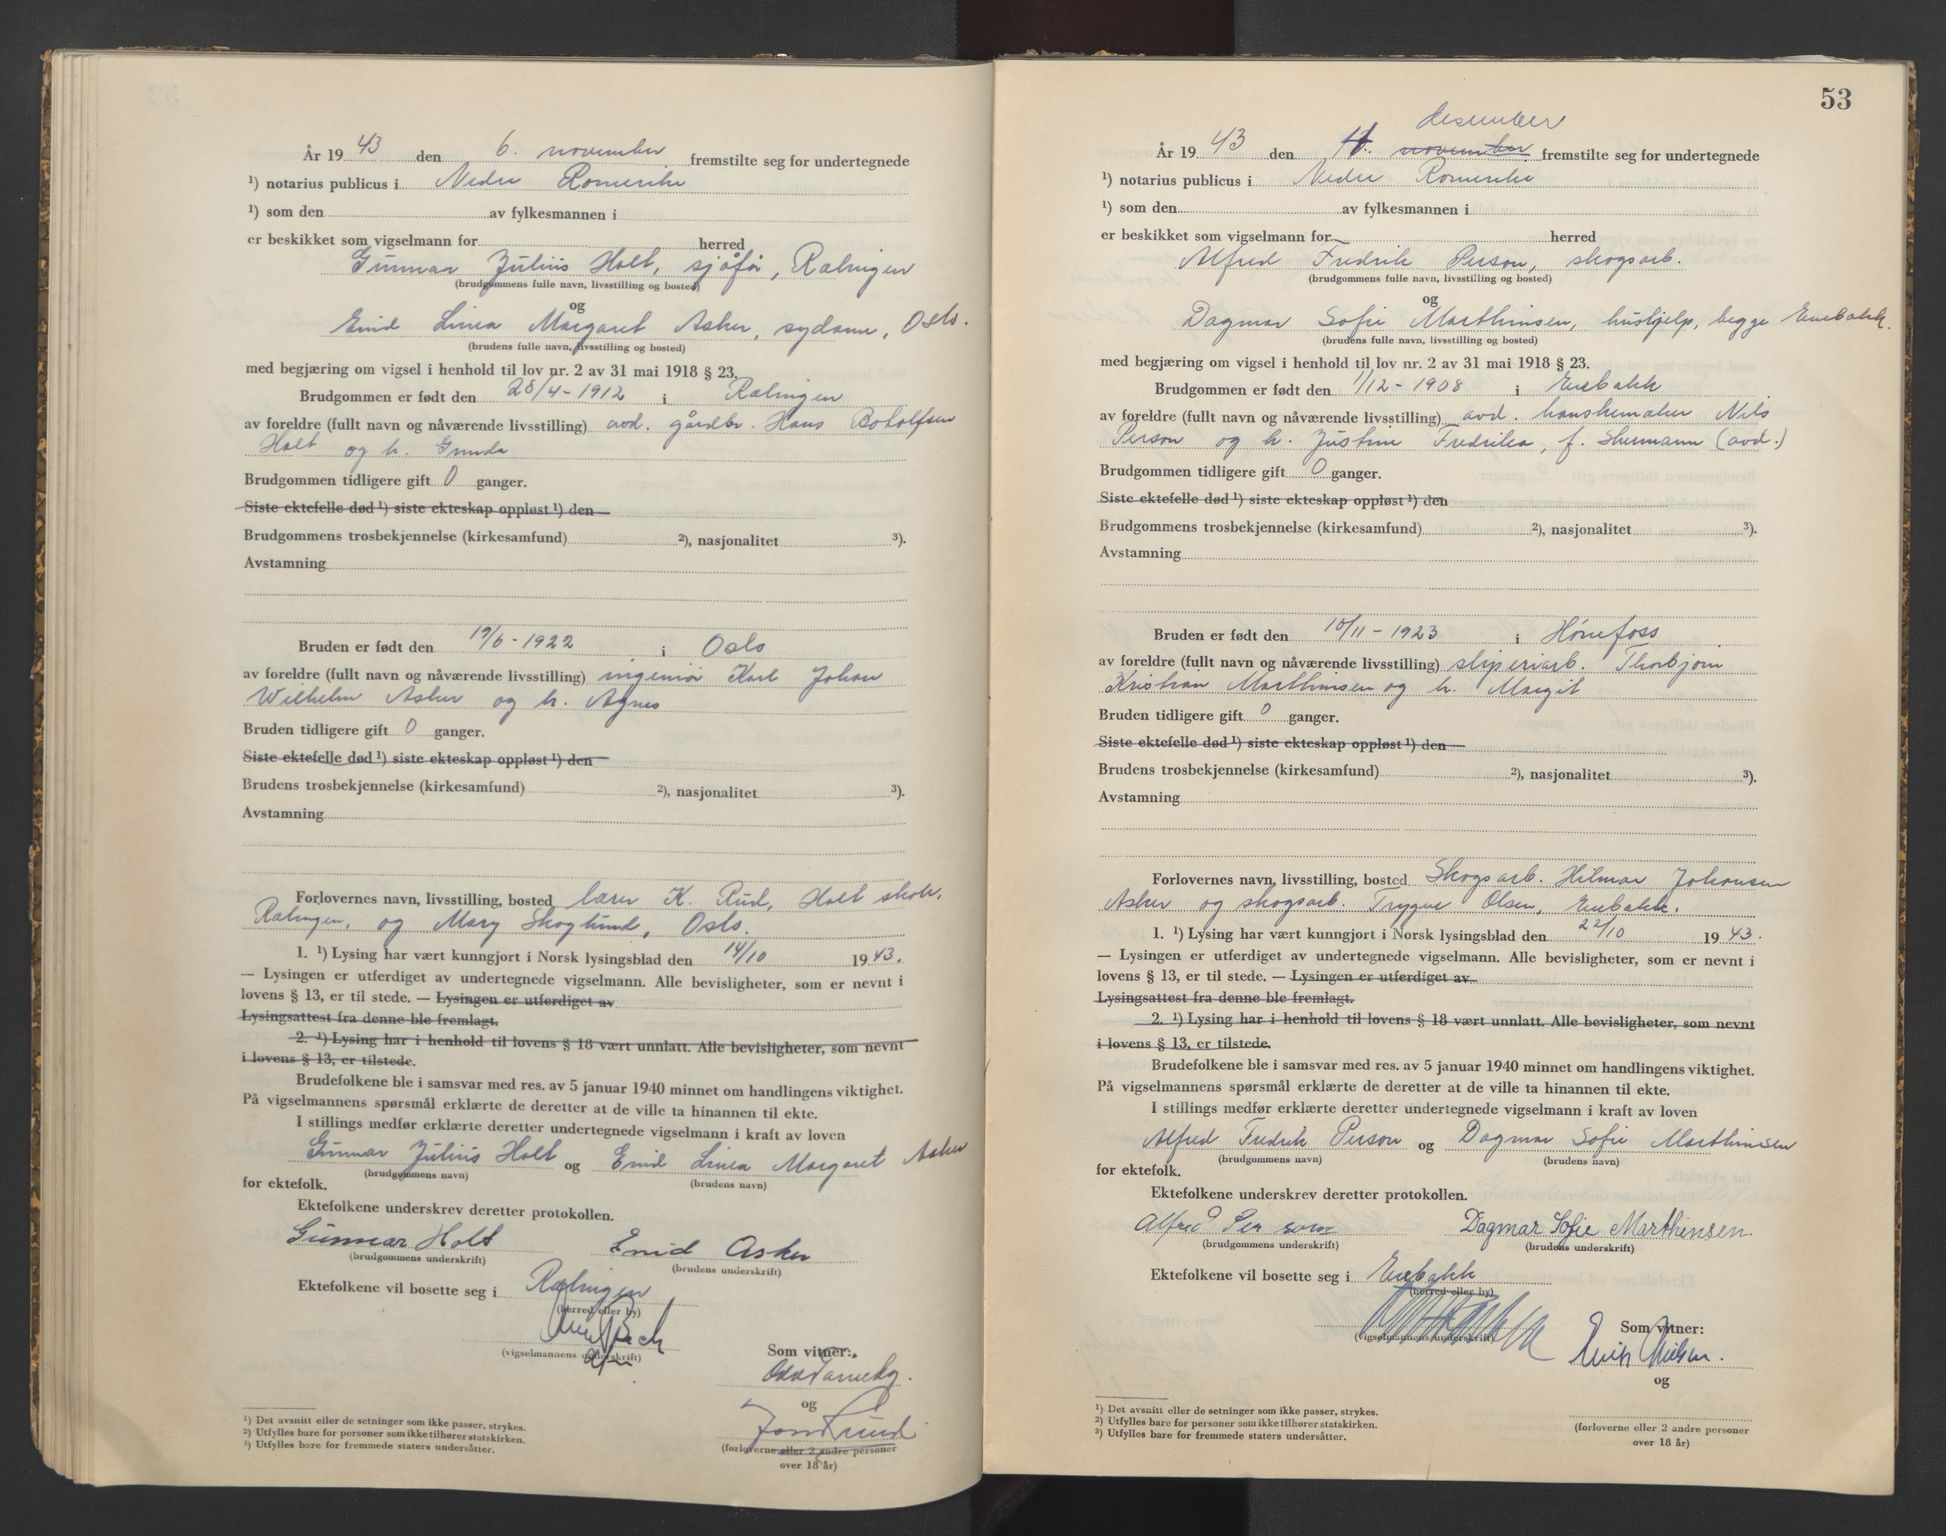 År 1943 den 6. november fremstilte seg for undertegnede
¹) notarius publicus i Nedre Romerike
¹) som den av fylkesmannen i
er beskikket som vigselmann for herred
Gunnar Julius Holt, sjåfør, Rælingen
(brudgommens fulle navn, livsstilling og bosted)
og
Enid Linea Margaret Asker, sydame, Oslo.
(brudens fulle navn, livsstilling og bosted)
med begjæring om vigsel i henhold til lov nr. 2 av 31 mai 1918 § 23.
Brudgommen er født den 28/4-1912 i Rælingen
av foreldre (fullt navn og nåværende livsstilling) avd. gårdbr. Hans Botolfsen
Holt og h. Gunda
Brudgommen tidligere gift 0 ganger.
Siste ektefelle død ¹) siste ekteskap oppløst ¹) den
Brudgommens trosbekjennelse (kirkesamfund) ²), nasjonalitet ³).
Avstamning
Bruden er født den 19/6-1922 i Oslo
av foreldre (fullt navn og nåværende livsstilling) ingeniør Karl Johan
Wilhelm Asker og h. Agnes
Bruden tidligere gift 0 ganger.
Siste ektefelle død ¹) siste ekteskap oppløst ¹) den
Brudens trosbekjennelse (kirkesamfund) ²), nasjonalitet ³).
Avstamning
Forlovernes navn, livsstilling, bosted lærer K. Rud, Holt skole,
Rælingen, og Mary Skoglund, Oslo.
1. ¹) Lysing har vært kunngjort i Norsk lysingsblad den 14/10 1943.
— Lysingen er utferdiget av undertegnede vigselmann. Alle bevisligheter, som er nevnt i
lovens § 13, er til stede. — Lysingen er utferdiget av
Lysingsattest fra denne ble fremlagt.
2. ¹) Lysing har i henhold til lovens § 18 vært unnlatt. Alle bevisligheter, som nevnt
i lovens § 13, er tilstede.
Brudefolkene ble i samsvar med res. av 5 januar 1940 minnet om handlingens viktighet.
På vigselmannens spørsmål erklærte de deretter at de ville ta hinannen til ekte.
I stillings medfør erklærte deretter undertegnede vigselmann i kraft av loven
Gunnar Julius Holt og Enid Linea Margaret Asker
(brudgommens navn) (brudens navn)
for ektefolk.
Ektefolkene underskrev deretter protokollen.
Gunnar Holt Enid Asker
(brudgommens underskrift) (brudens underskrift)
Ektefolkene vil bosette seg i Rælingen
(herred eller by)
(vigselmannens underskrift)
Som vitner:
og
(forloverne eller 2 andre personer
over 18 år)
¹) Det avsnitt eller de setninger som ikke passer, strykes.
²) Utfylles bare for personer som ikke tilhører statskirken.
³) Utfylles bare for fremmede staters undersåtter.
53
desember
År 1943 den november fremstilte seg for undertegnede
¹) notarius publicus i Nedre Romerike
¹) som den av fylkesmannen i
er beskikket som vigselmann for herred
Alfred Fredrik Person, skogsarb.
(brudgommens fulle navn, livsstilling og bosted)
og
Dagmar Sofie Marthinsen, hushjelp, begge Enebakk.
(brudens fulle navn, livsstilling og bosted)
med begjæring om vigsel i henhold til lov nr. 2 av 31 mai 1918 § 23.
Brudgommen er født den 1/12-1908 i Enebakk
av foreldre (fullt navn og nåværende livsstilling) avd. hanskemaker Nils
Person og h. Justine Fredrika, f. Shumann (avd.)
Brudgommen tidligere gift 0 ganger.
Siste ektefelle død ¹) siste ekteskap oppløst ¹) den
Brudgommens trosbekjennelse (kirkesamfund) ²), nasjonalitet ³).
Avstamning
Bruden er født den 10/11-1923 i Hønefoss
av foreldre (fullt navn og nåværende livsstilling) sliperiarb. Thorbjørn
Kristian Marthinsen og h. Margit
Bruden tidligere gift 0 ganger.
Siste ektefelle død ¹) siste ekteskap oppløst ¹) den
Brudens trosbekjennelse (kirkesamfund) ²), nasjonalitet ³).
Avstamning
Forlovernes navn, livsstilling, bosted Skogsarb. Hilmar Johansen
Asker og skogsarb. Trygve Olsen, Enebakk.
1. ¹) Lysing har vært kunngjort i Norsk lysingsblad den 22/10 1943.
— Lysingen er utferdiget av undertegnede vigselmann. Alle bevisligheter, som er nevnt i
lovens § 13, er til stede. — Lysingen er utferdiget av
Lysingsattest fra denne ble fremlagt.
2. ¹) Lysing har i henhold til lovens § 18 vært unnlatt. Alle bevisligheter, som nevnt
i lovens § 13, er tilstede.
Brudefolkene ble i samsvar med res. av 5 januar 1940 minnet om handlingens viktighet.
På vigselmannens spørsmål erklærte de deretter at de ville ta hinannen til ekte.
I stillings medfør erklærte deretter undertegnede vigselmann i kraft av loven
Alfred Fredrik Person og Dagmar Sofie Marthinsen
(brudgommens navn) (brudens navn)
for ektefolk.
Ektefolkene underskrev deretter protokollen.
Alfred Person Dagmar Sofie Marthinsen.
(brudgommens underskrift) (brudens underskrift)
Ektefolkene vil bosette seg i Enebakk
(herred eller by)
(vigselmannens underskrift)
Som vitner:
Nielsen.
og
(forloverne eller 2 andre personer
over 18 år)
¹) Det avsnitt eller de setninger som ikke passer, strykes.
²) Utfylles bare for personer som ikke tilhører statskirken.
³) Utfylles bare for fremmede staters undersåtter.